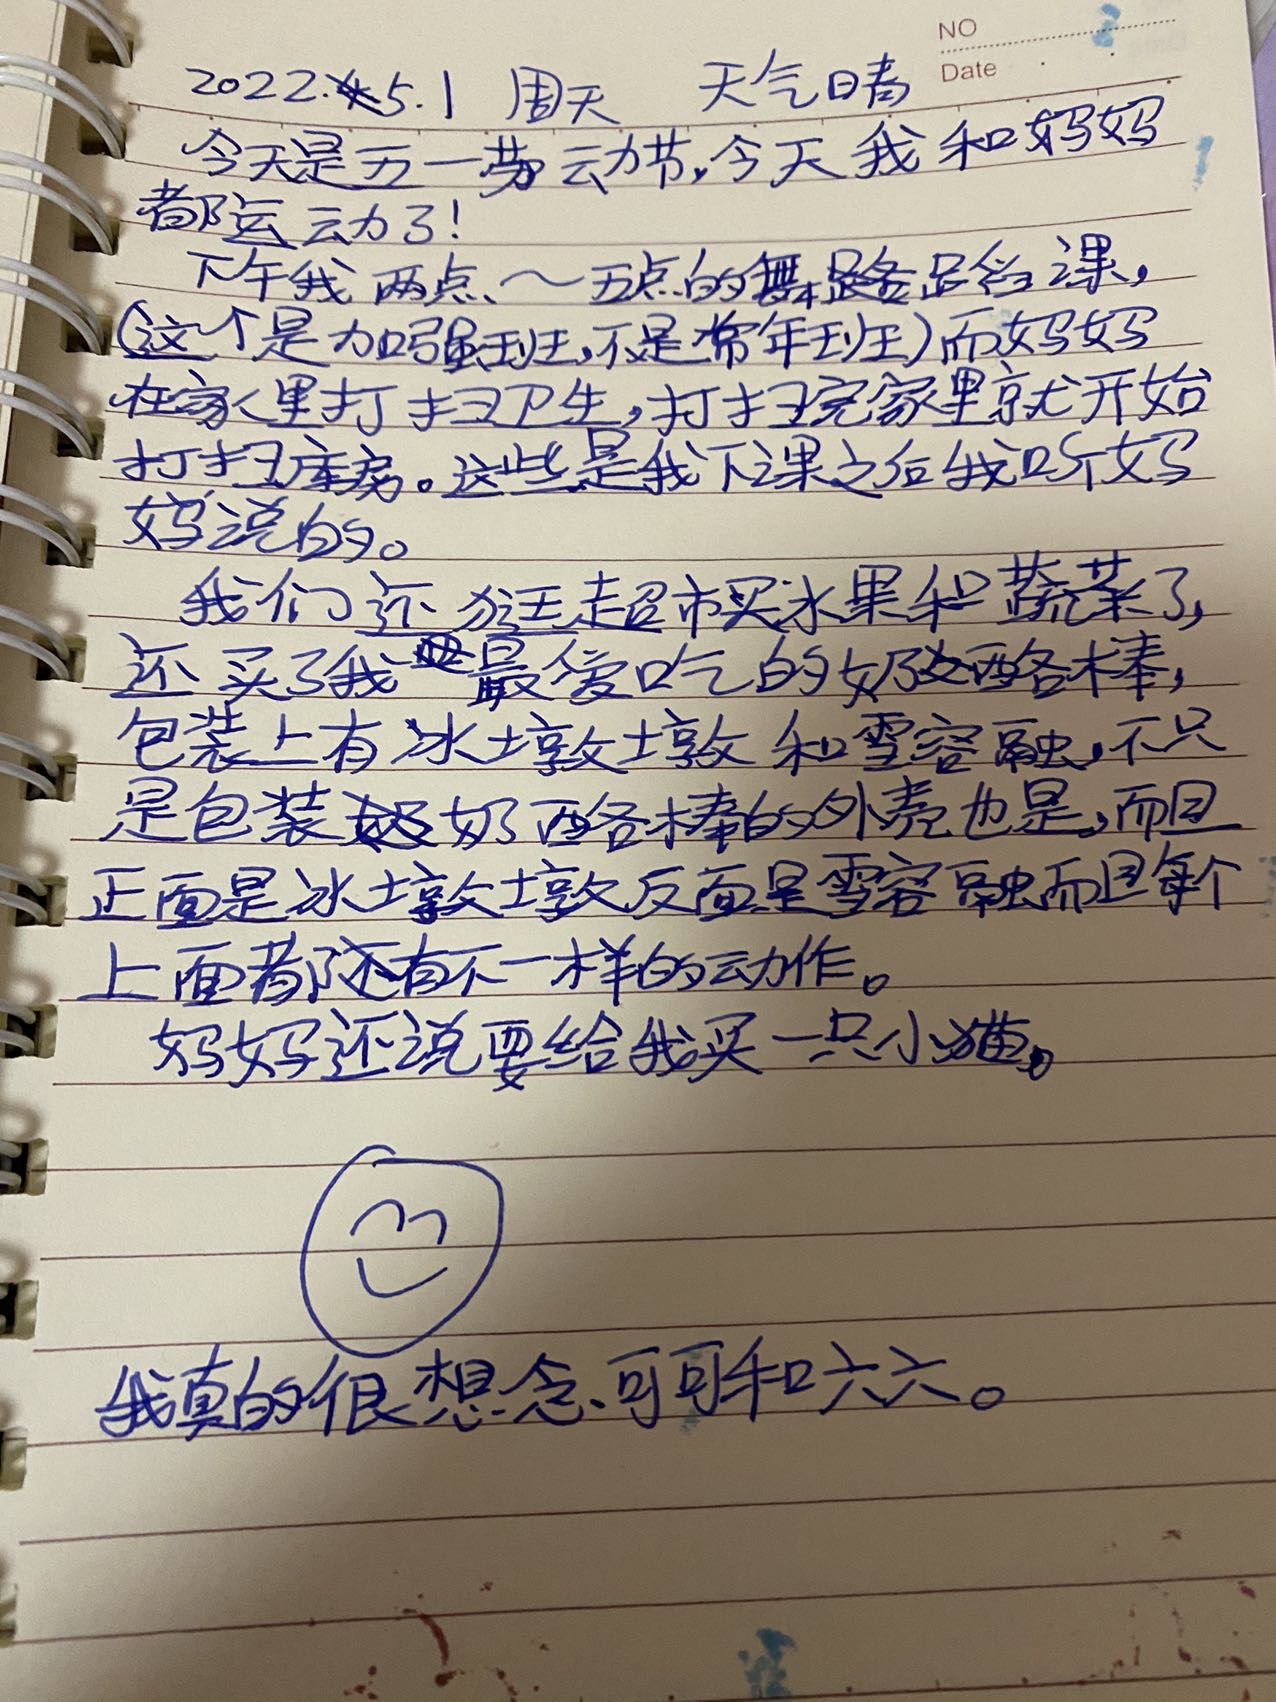 NO
Date
2022.5.1 周天 天气日青
今天是五一劳动节,今天我和妈妈
都运动了!
下午我两点~五点的舞蹈课,
(这个是加强班,不是常年班)而妈妈
在家里打扫卫生,打扫完家里就开始
打扫库房。这些是我下课之后我听妈
妈说的。
我们还去超市买水果和蔬菜了,
还买了我最爱吃的奶酪棒,
包装上有冰墩墩和雪容融,不只
是包装奶酪棒的外壳也是,而且
正面是冰墩墩反面是雪容融而且每个
上面都还有不一样的动作。
妈妈还说要给我买一只小猫。
我真的很想念、可可和六六。